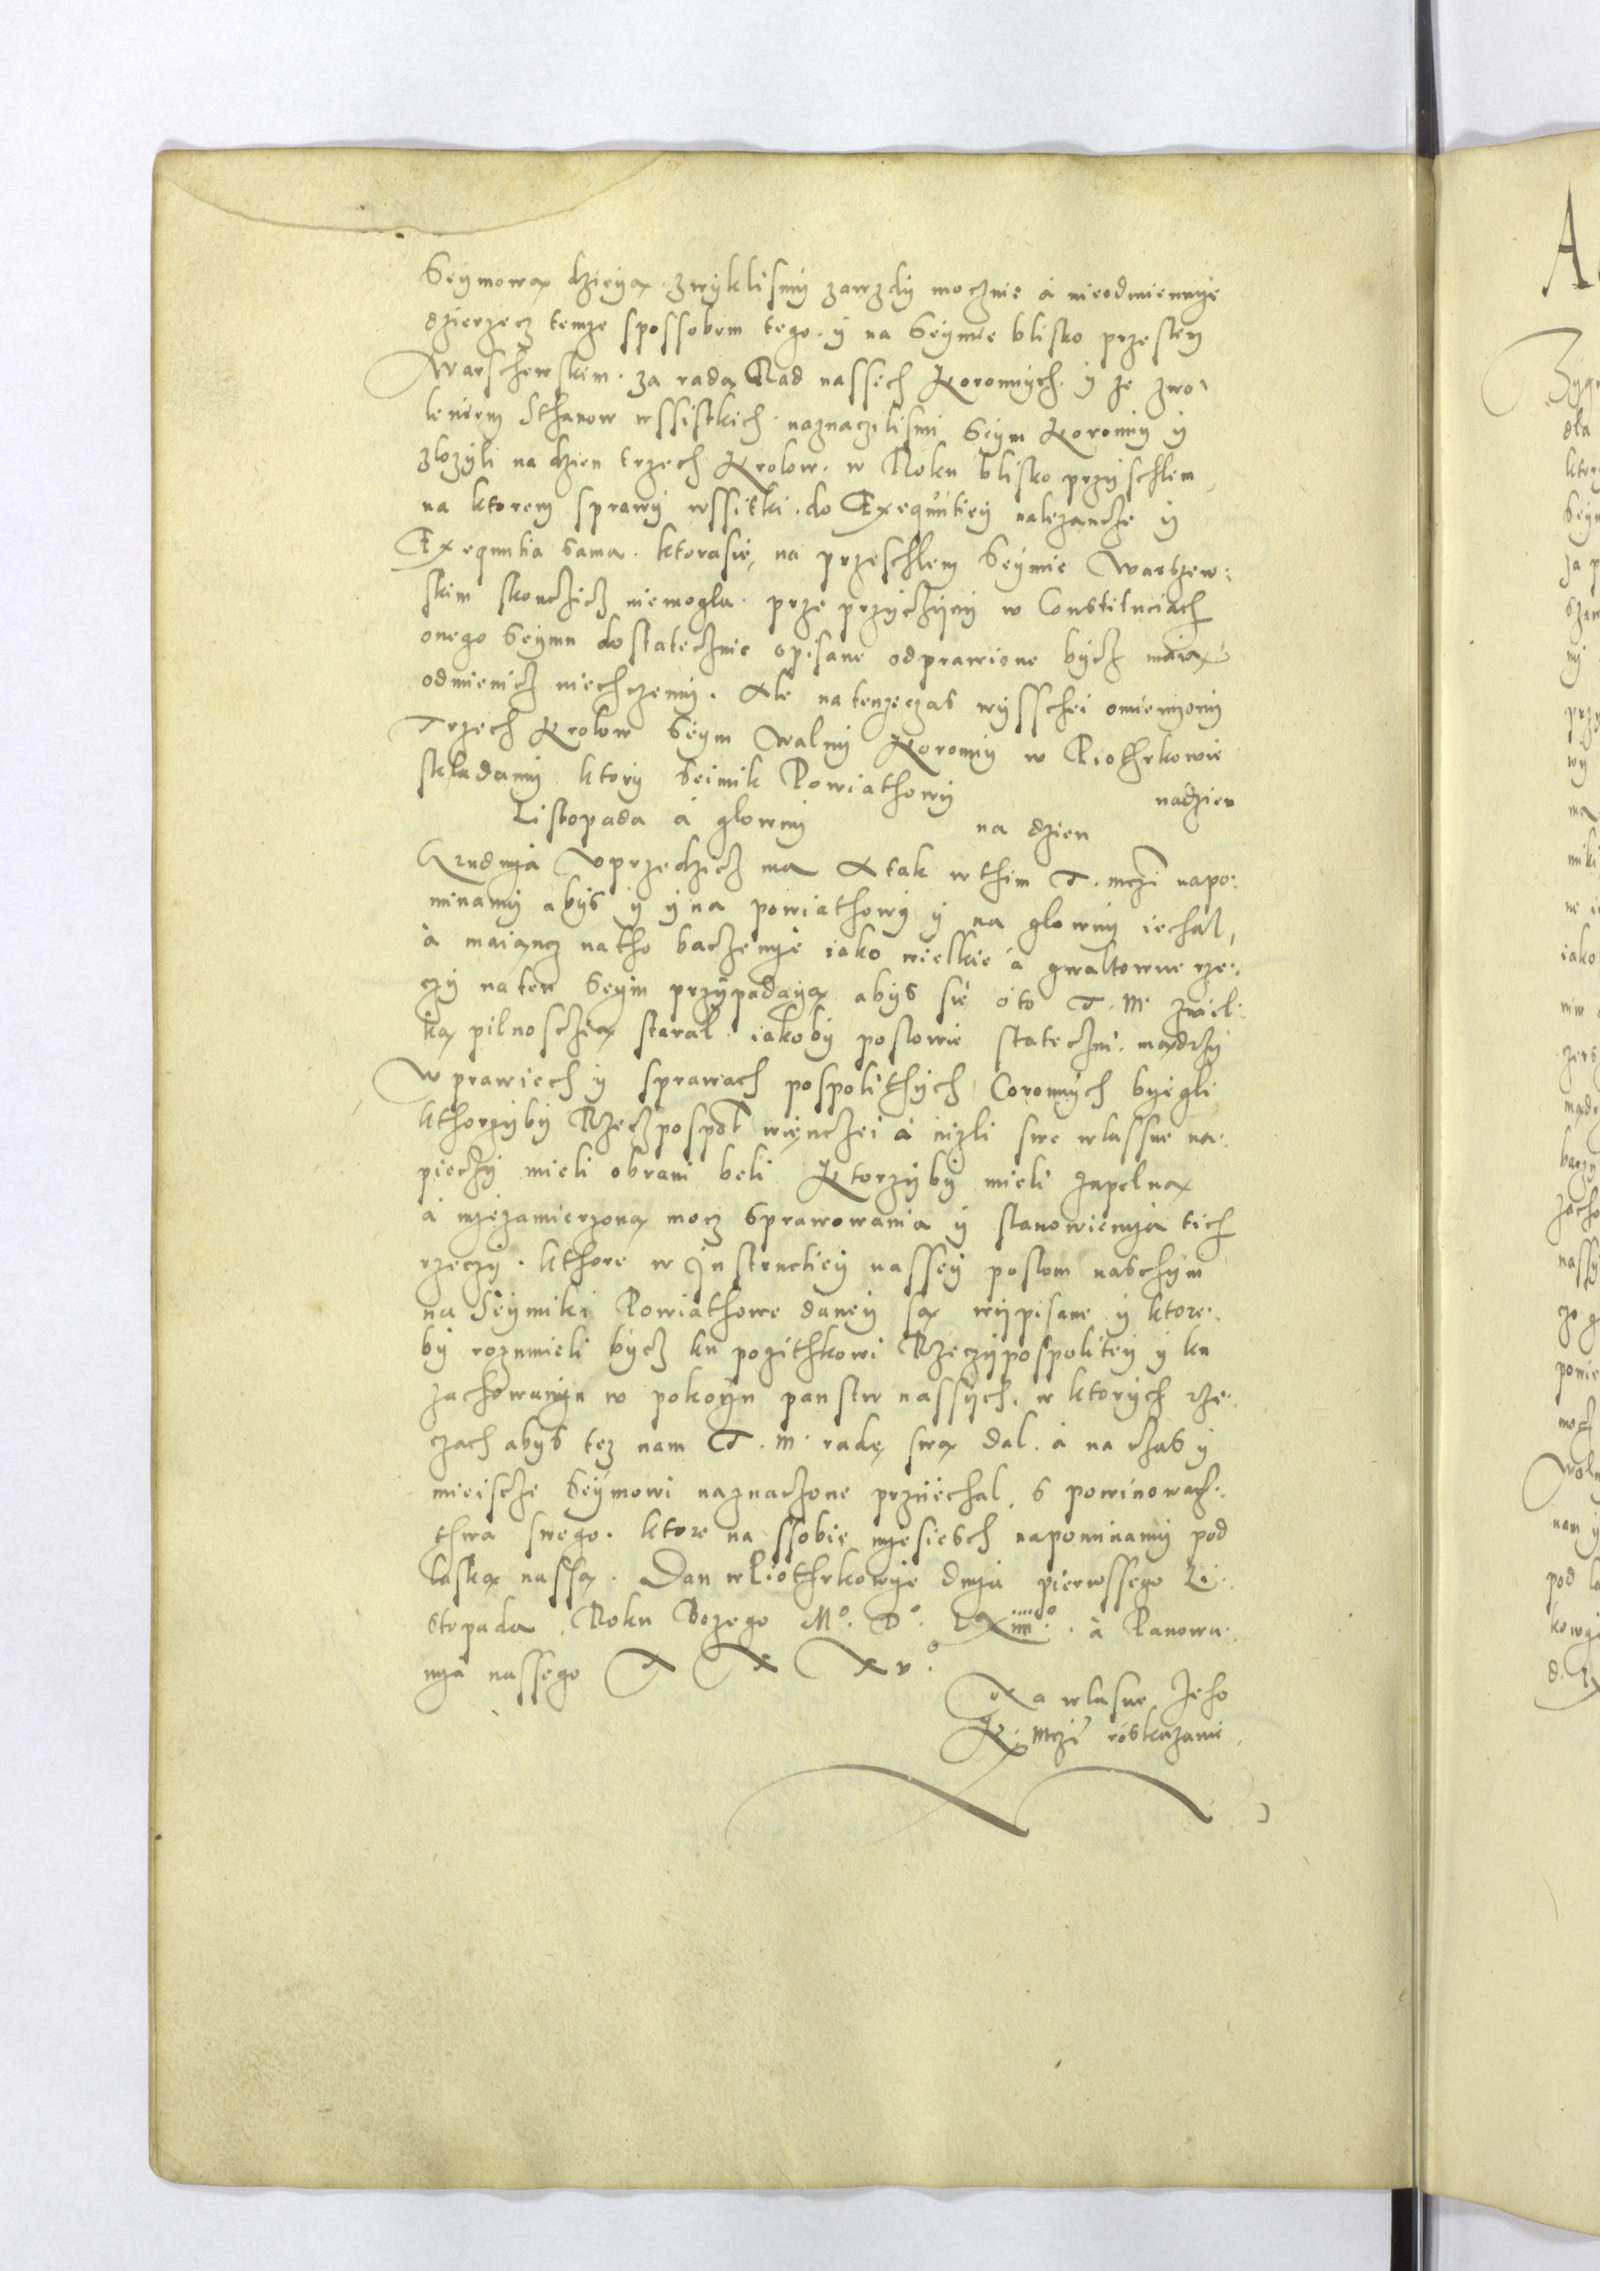 Seymową dzieyą zwyklismy zawzdy mocznie á nieodmiennye
dzierzecz temze spossobem tego y na Seymie blisko przeslem
Warschewskim za radą Rad nassich Koronnych y ze zwo
leniem Sthanow wssistkich naznaczilismi Seym Koronny y
zlozyli na dzien trzech Krolow w Roku blisko przyschlem
na ktorem sprawy wssitki do Exequutiey nalezancze y
Exequutia sama ktorasię na przeschlem Seymie Warszew:
skim skonczicz niemogla prze przyczyny w Constituciach
onego Seymu dostatecznie opisane odprawione bycz maią
odmienicz niechczemy. Ale natenzeczas wysschei omienyony
Trzech Krolow Seym Walny Koronny w Piothrkowie
skladamy ktory Seimik Powiathowy nadzien
Listopada á glowny na dzien
Grudnya Uprzedzicz ma A tak w thim T. mczi napo:
minamy abys y y na powiathowy y na glowny iechal,
á maiancz natho baczenye iako wielkie á gwaltowne rze:
czy na ten Seym przypadayą abys się oto T. M. zwiel:
ką pilnosczią staral iakoby poslowie stateczni mądrzy
W prawiech y sprawach pospolithych Coronnych byegli
kthorzyby Rzeczpospol więnczei á nizli swe wlassne na
pieczy mieli obrani beli Ktorzyby mieli zupelną
á nyezamierzoną mocz sprawowania y stanowienya tich
rzeczy. kthore w Instructiey nassey poslom nabchym
na Seymiki Powiathowe daney są wypisane y ktore:
by rozumieli bycz ku pozithkowi Rzeczypospolitey y ku
zachowanyu w pokoyu panstw nassych, w ktorych rze:
czach abys tez nam T. M. radę swą dal. á na czas y
mieiscze Seymowi naznaczone przyiechal, s powinowacz:
thwa swego. ktore na ssobie nyesiesch napominamy pod
laską nassą. Dan w Piothrkowye dnya pierwssego Li:
stopada. Roku Bozego Mº. Dº. LXiiiiº. á Panowa:
nya nassego X X Xvº
Na wlasne Jeho
K. Mczi roskazanie